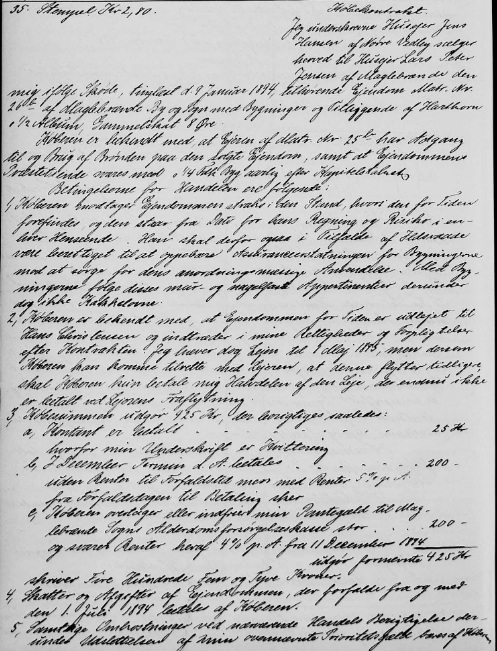 35. Stempel Kr 2,80.
Købekontrakt.
Jeg underskrevne Husejer Jens
Hansen af Nørre Vedby sælger
herved til Husejer Lars Peter
Jensen af Maglebrænde den
mig ifølge Skøde, tinglæst d. 9 Januar 1894, tilhørende Ejendom Matr. Nr.
af Maglebrænde By og Sogn med Bygninger og Tilliggende af Hartkorn
1/2 Album, Gammelskat 8 Øre.
Køberen er bekendt med, at Ejeren af Matr. Nr 25 har Adgang
til og Brug af Brønden paa den solgte Ejendom, samt at Ejendommens
svares med 1/4 Byg aarlig efter Kapitelstakst
Betingelserne for Handelen ere følgende:
1, Køberen modtager Ejendommen straks i den Stand, hvori den for Tiden
forefindes og den staar fra Dato for hans Regning og Risiko i en-
hver Henseende. Han skal derfor ogsaa i Tilfælde af Ildsvaade
være berettiget til at oppebære Assuranceerstatningen for Bygningerne
mod at sørge for dens anordningsmæssige Anvendelse. Med Byg-
ningerne følge disses mur- og nagelfaste Appertinentier derunder
dog ikke Kakkelovne.
2, Køberen er bekendt med, at Ejendommen for Tiden er udlejet til
Hans Christensen og indtræder i mine Rettigheder og Forpligtelser
efter Kontrakten. Jeg hæver dog Lejen til 1 Maj 1895, men dersom
Køberen kan komme tilrette med Lejeren, at denne flytter tidligere,
skal Køberen kun betale mig Halvdelen af den Leje, der endnu ikke
er betalt ved Lejerens Fraflytning.
3, Købesummen udgør 425 Kr, der berigtiges saaledes:
a, Kontant er betalt 25 Kr
hvorfor min Underskrift er Kvittering
b, I December Termin d. A. betales 200 -
uden Renter til Forfaldstid men med Renter 5% p. A.
fra Forfaldsdagen til Betaling sker
c, Køberen overtager eller indfrier min Pantegæld til Mag-
lebrænde Sogns Alderdomsforsørgelseskasse stor 200 -
og svarer Renter heraf 4% p. A. fra 11 December 1894
udgør formeldte 425 Kr
skriver Fire Hundrede Fem og Tyve Kroner.
4, Skatter og Afgifter af Ejendommen, der forfalde fra og med
den 1. Juli 1894 betales af Køberen.
5, Samtlige Omkostninger ved nærværende Handels Berigtigelse der-
under Udslettelsen af min ovennævnte Prioritetsgæld bæres af Køberen